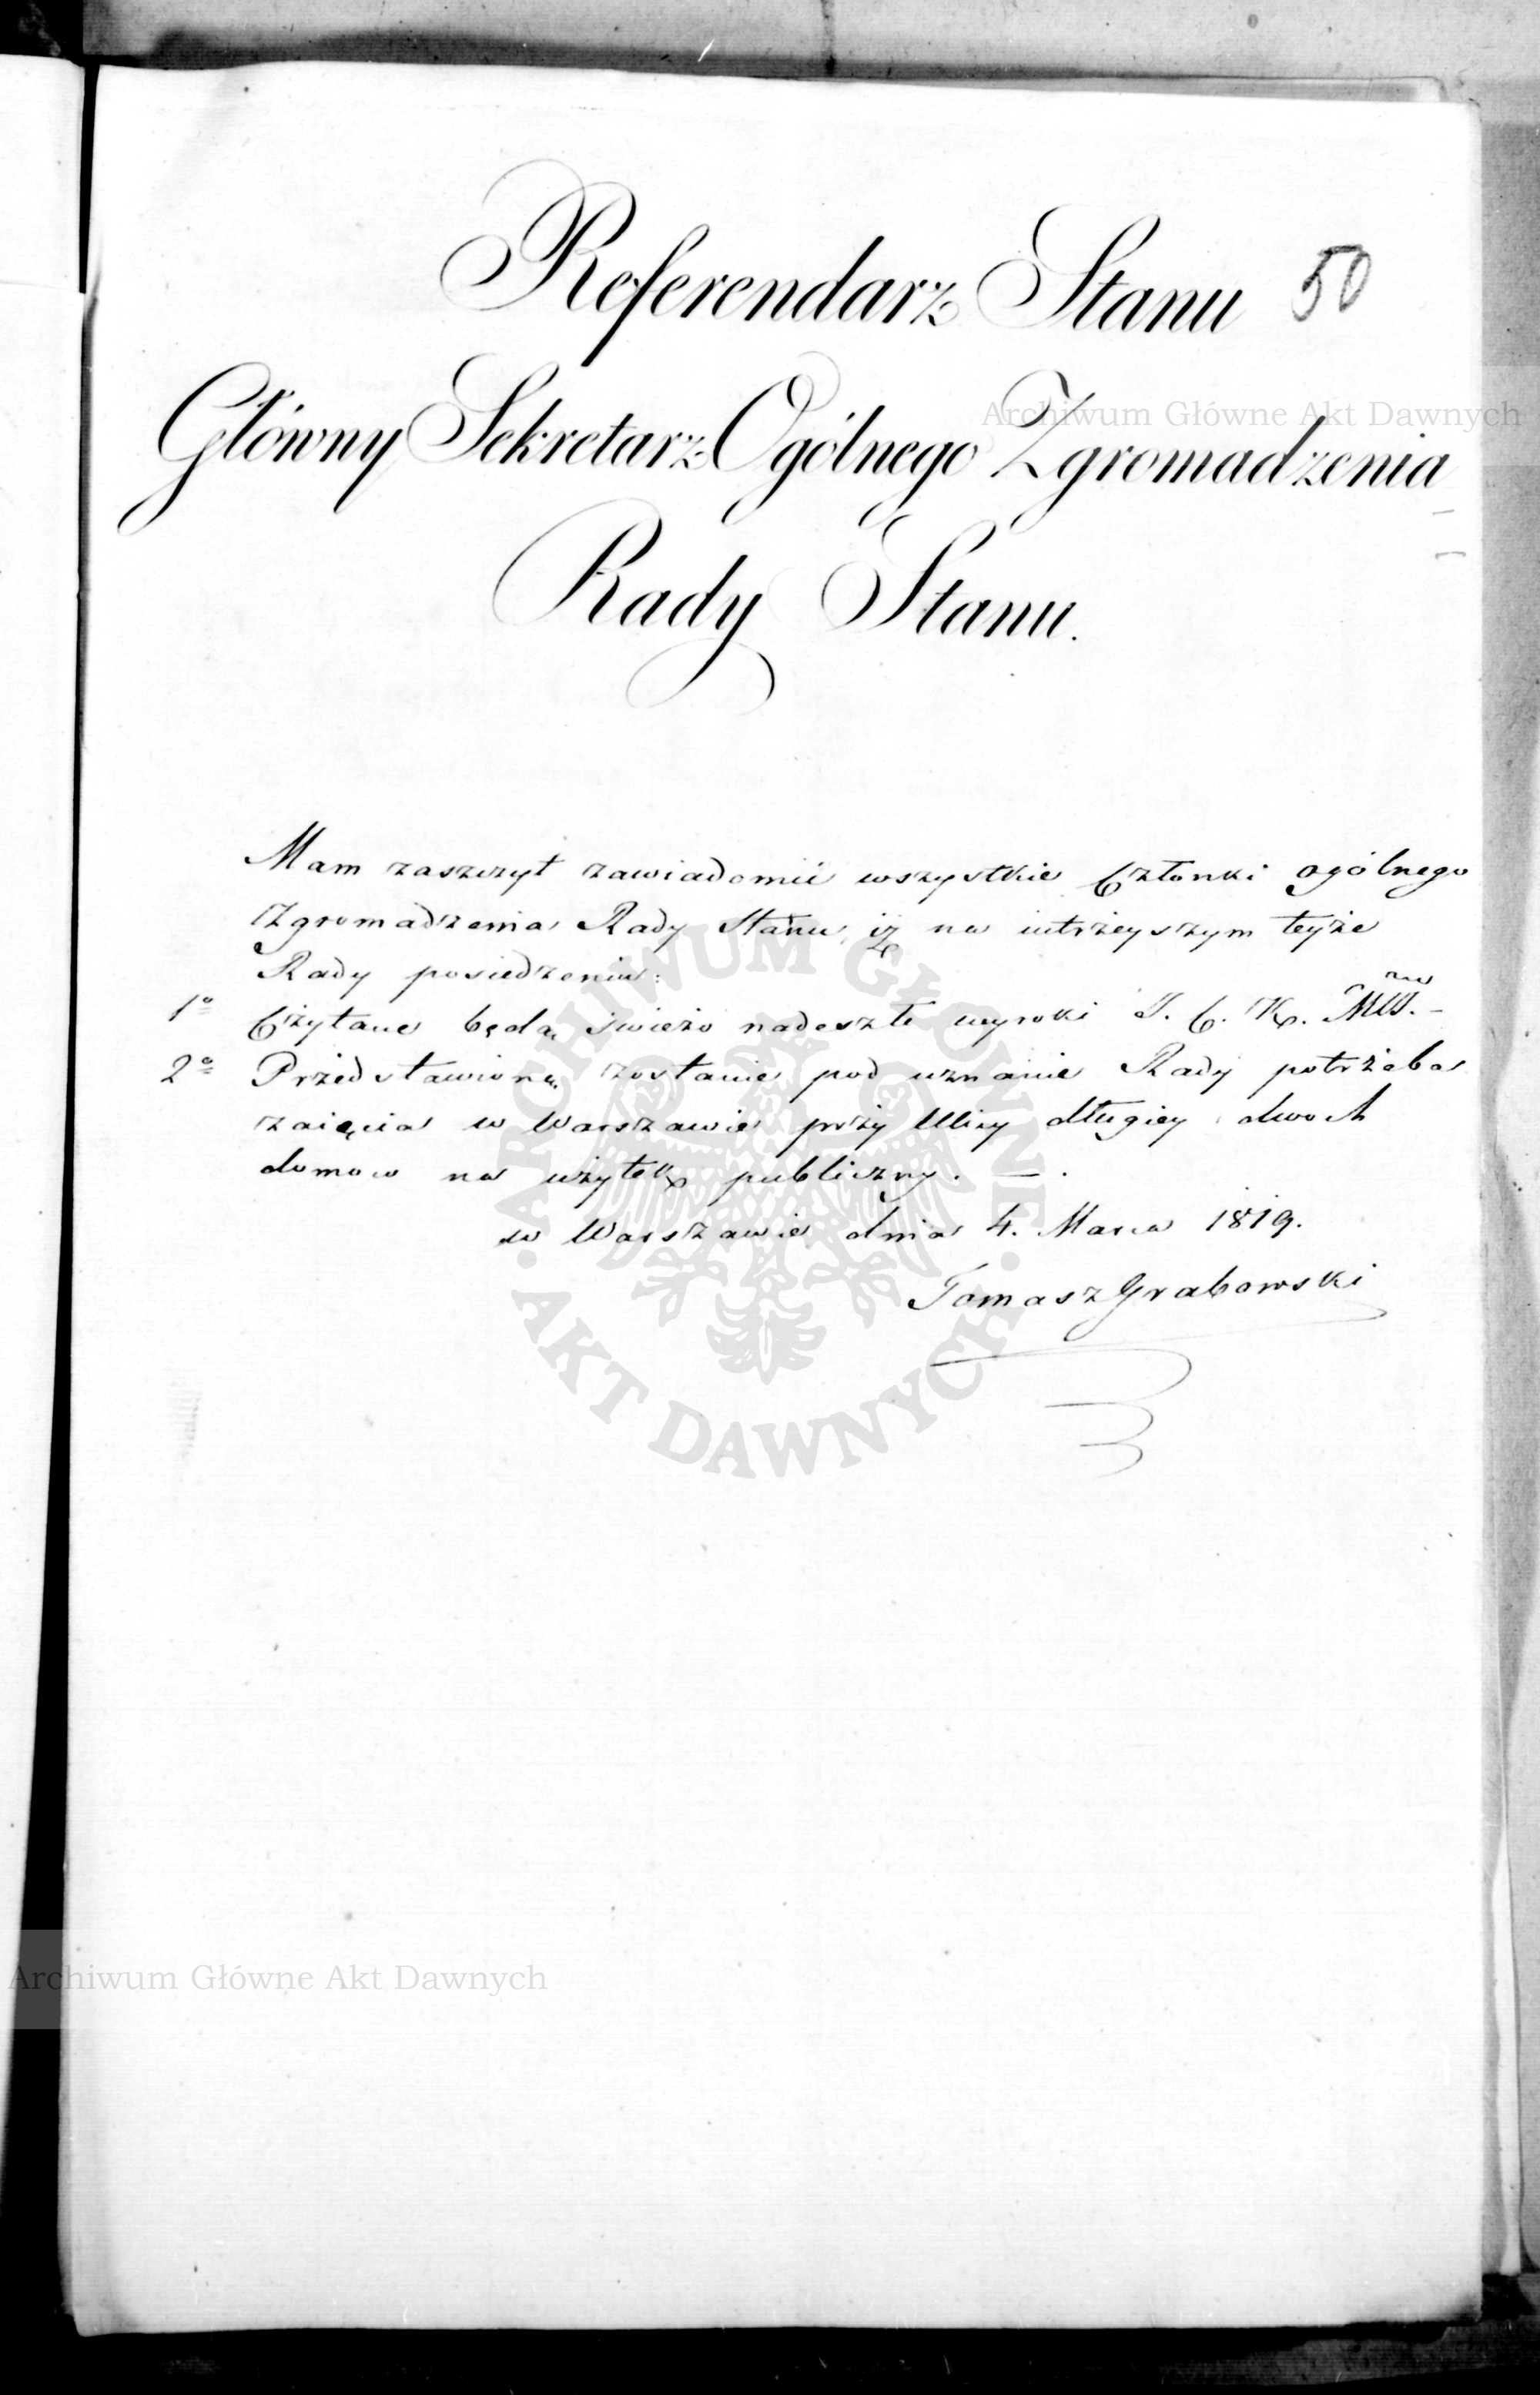 Referendarz Stanu 50
Główny Sekretarz Ogólnego Zgromadzenia
Rady Stanu.
Archiwum Główne Akt Dawnych
Mam zaszczyt zawiadomić wszystkie Członki ogólnego
Zgromadzenia Rady Stanu, iż na iutrzeyszym teyże
Rady posiedzeniu:
1º Czytane będą świeżo nadeszłe wyroki J. C. K. Mci. –
2º Przedstawioną zostanie pod uznanie Rady potrzeba
zaięcia w Warszawie przy Ulicy długiey dwoch
domow na użytek publiczny. —.
w Warszawie dnia 4. Marca 1819.
Tomasz Grabowski
ARCHIWUM GŁÓWNE AKT DAWNYCH
Archiwum Główne Akt Dawnych